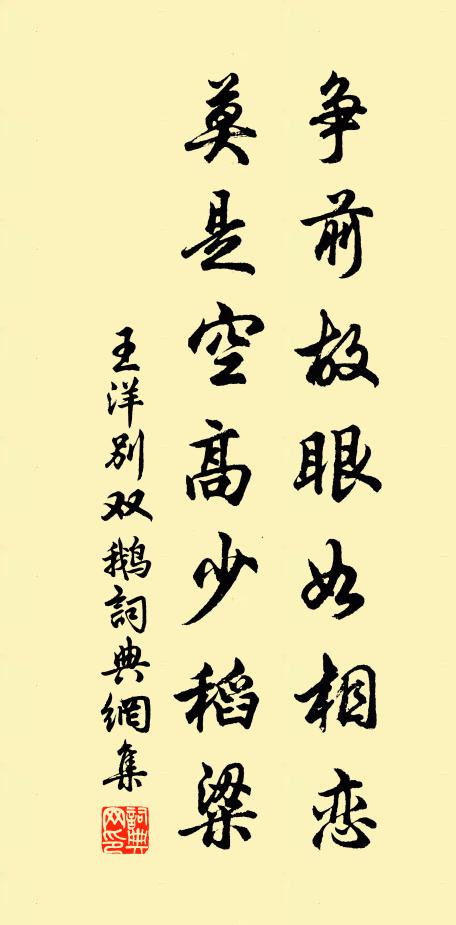 争前故眼如相恋
莫是空高少稻粱
王洋别双鹅詞典網集
詞典网印